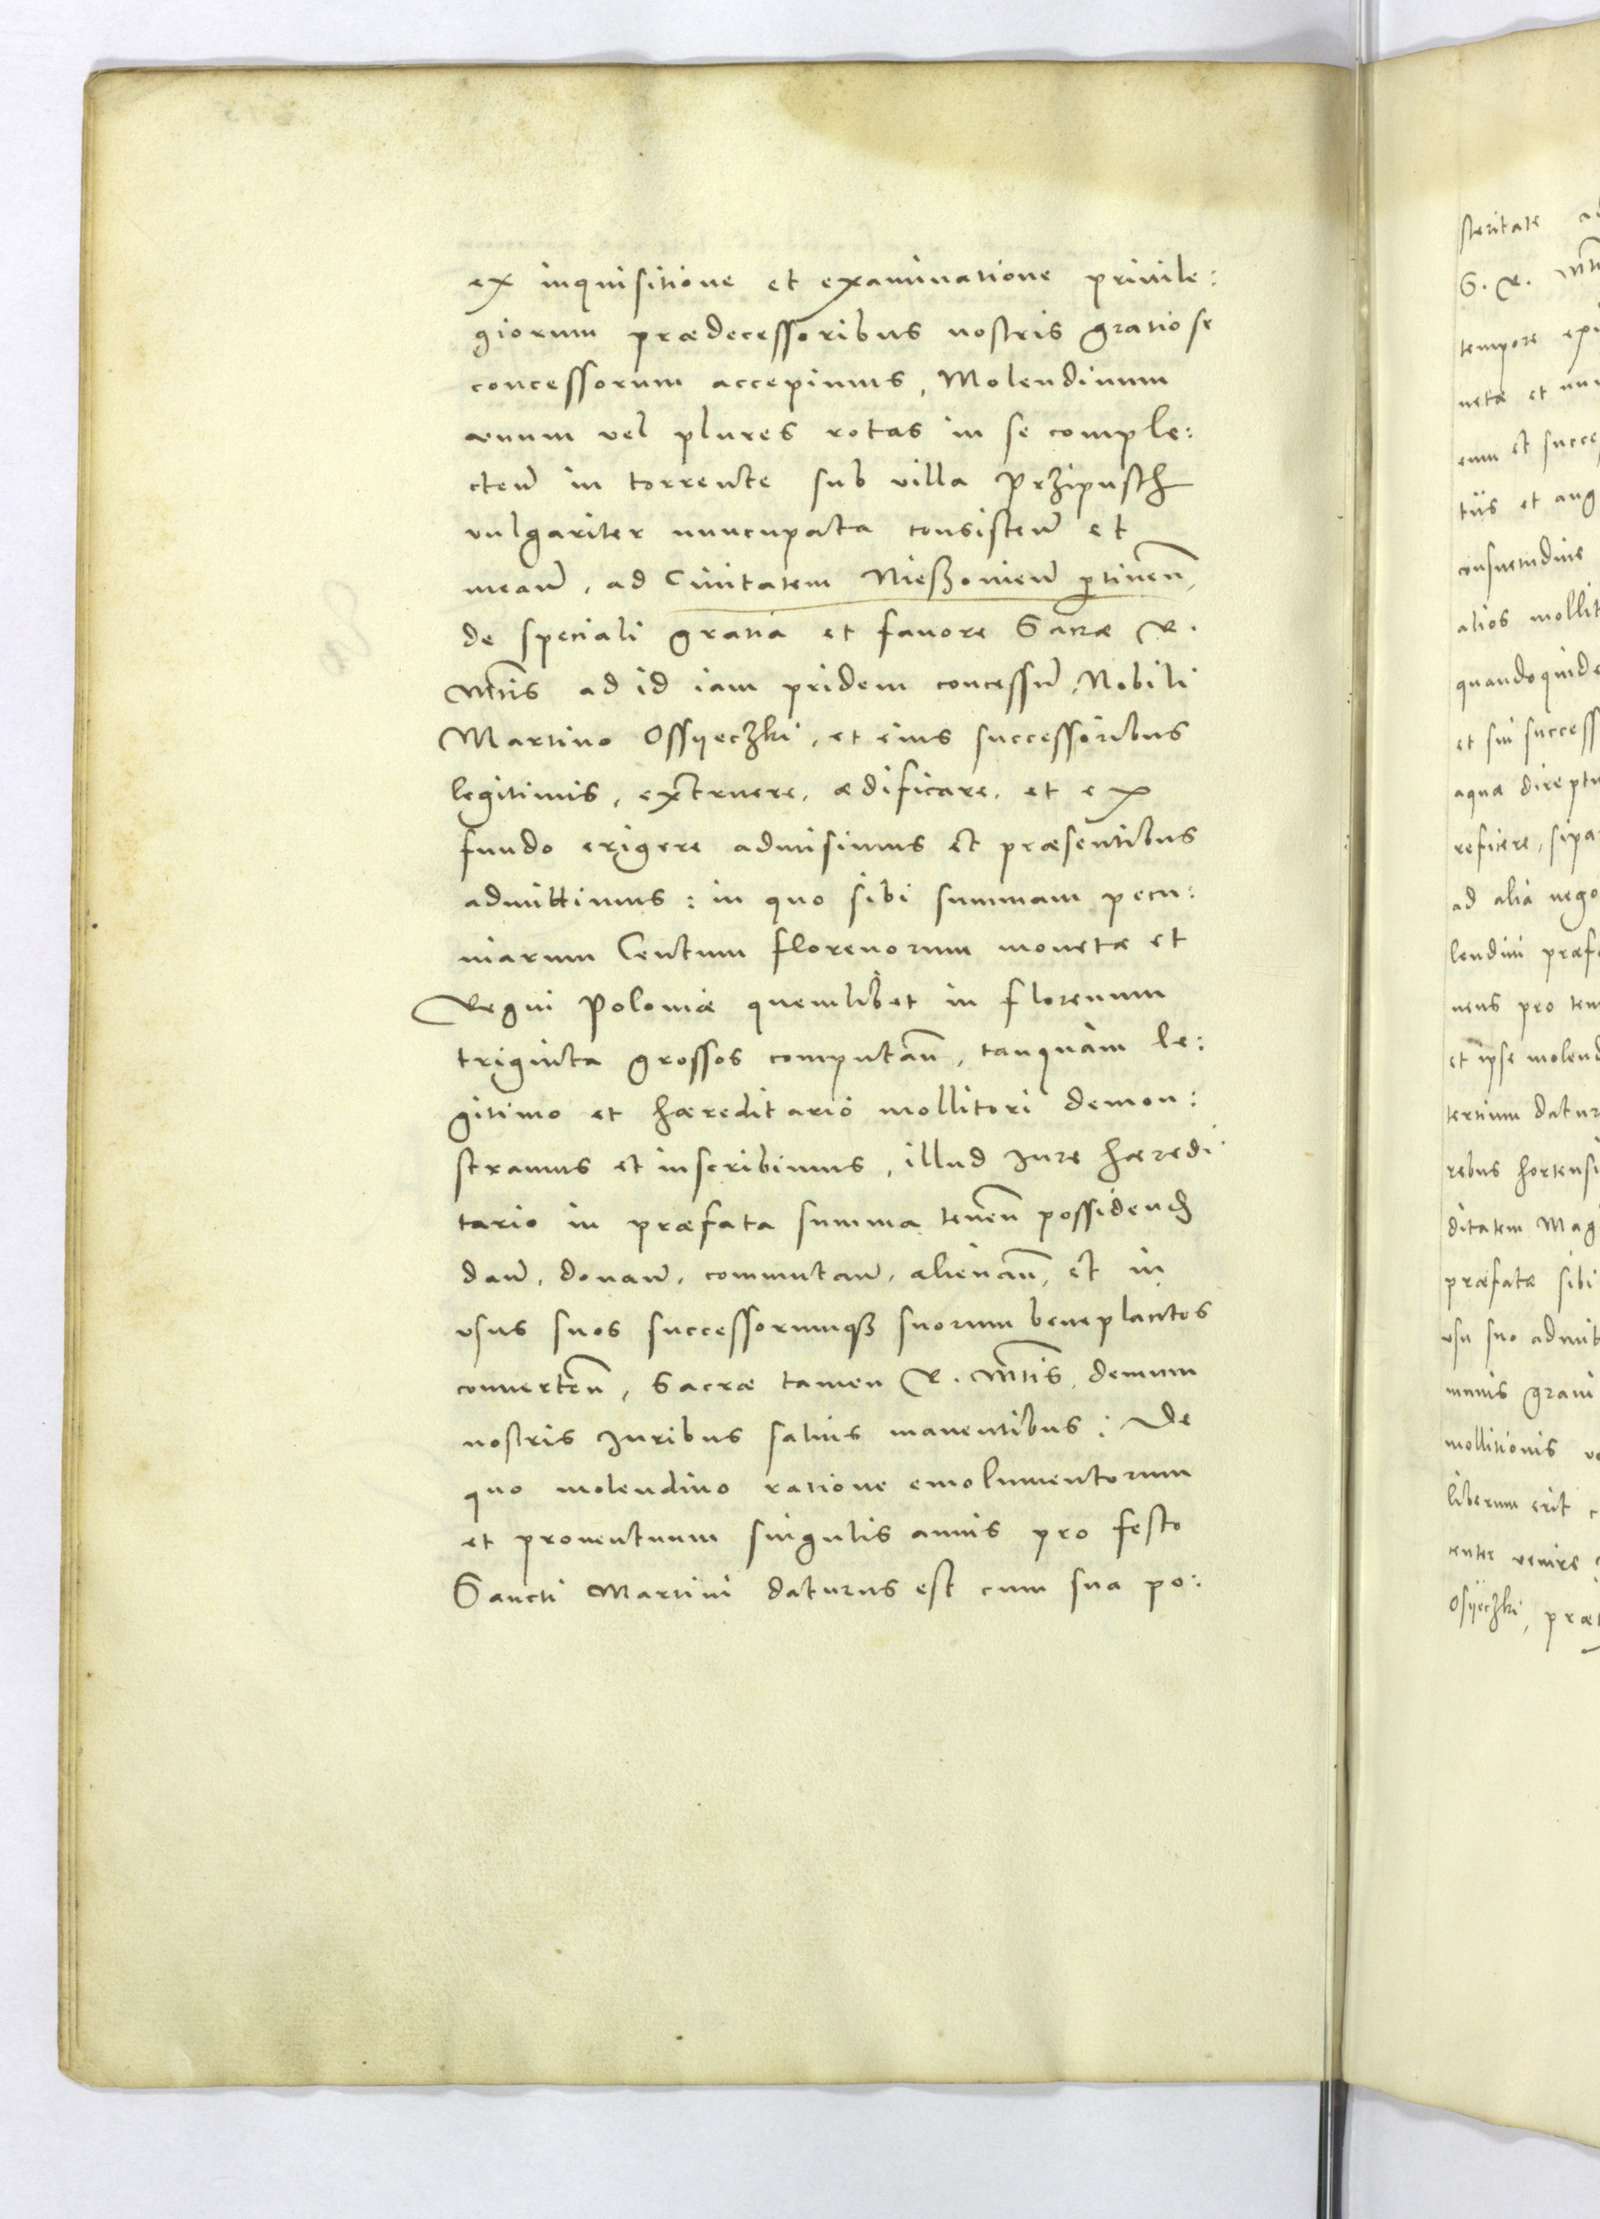 ex inquisitione et examinatione priuile:
giorum prædecessoribus nostris gratiose
concessorum accepimus, Molendinum
vnum vel plures rotas in se comple:
cteñ in torrente sub villa Przipusth
vulgariter nuncupata consisteñ et
meañ, ad Ciuitatem Nießouieñ ꝑtineñ,
de speciali gratia et fauore Sacræ R.
Mtis ad id iam pridem concessũ, Nobili
Martino Ossyeczki, et eius successoribus
legitimis, extruere, ædificare, et ex
fundo erigere admisimus et præsentibus
admittimus: in quo sibi summam pecu:
niarum Centum florenorum monetæ et
Regni Poloniæ quemlibet in florenum
triginta grossos computañ, tanquam le:
gitimo et hæreditario mollitori demon:
stramus et inscribimus, illud Iure hæredi:
tario in præfata summa teneñ possidend
dañ, donañ, commutañ, alienañ, et in
vsus suos successorumqꝫ suorum beneplacitos
conuerteñ, Sacræ tamen R. Mtis, demum
nostris Iuribus saluis manentibus: De
quo molendino ratione emolumentorum
et prouentuum singulis annis pro festo
Sancti Martini daturus est cum sua po:
steritate
S. R.
tempore
netæ et
eum et succe
tiis et aug
consuetudine
alios mollit
quandoquide
et sui success
aquæ direptu
reficere, sipa
ad alia nego
lendini præf
nens pro tem
et ipse molend
tertium datur
rebus hortensi
ditatem Mag
præfatæ sibi
vsu suo admit
munis graui
mollitionis
liberum erit
enter venire
Osyeczki, præ